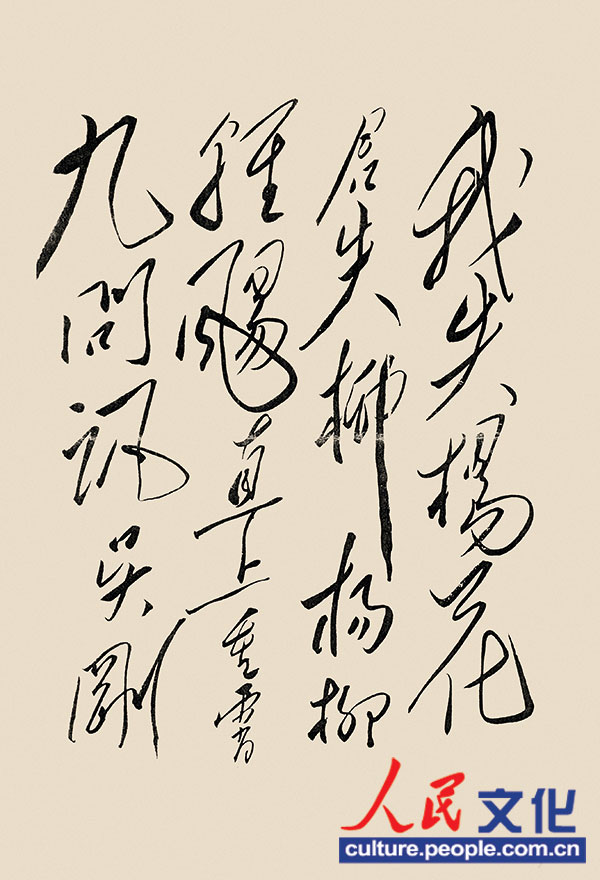 我失楊花
君失柳杨柳
輕颺直上重霄
九問訊吴剛
人民文化
culture.people.com.cn